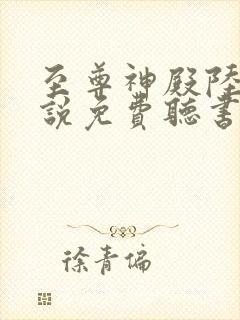 至尊神殿陸
説免費聽書
徐青偏